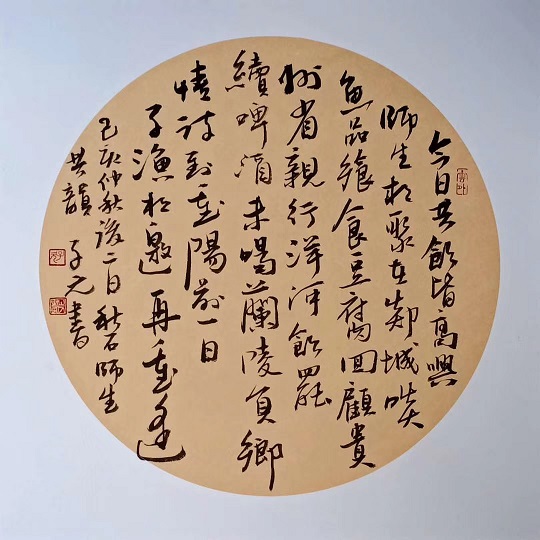 今日共飲皆高興
師生相聚在郯城啖
魚品飱食豆腐回顧貴
州省親行洋河飲罷
續啤酒未喝蘭陵負鄉
情詩到重陽前一日
子漁相邀再重逢
己亥仲秋後二日秋石師生
共韻 子元書